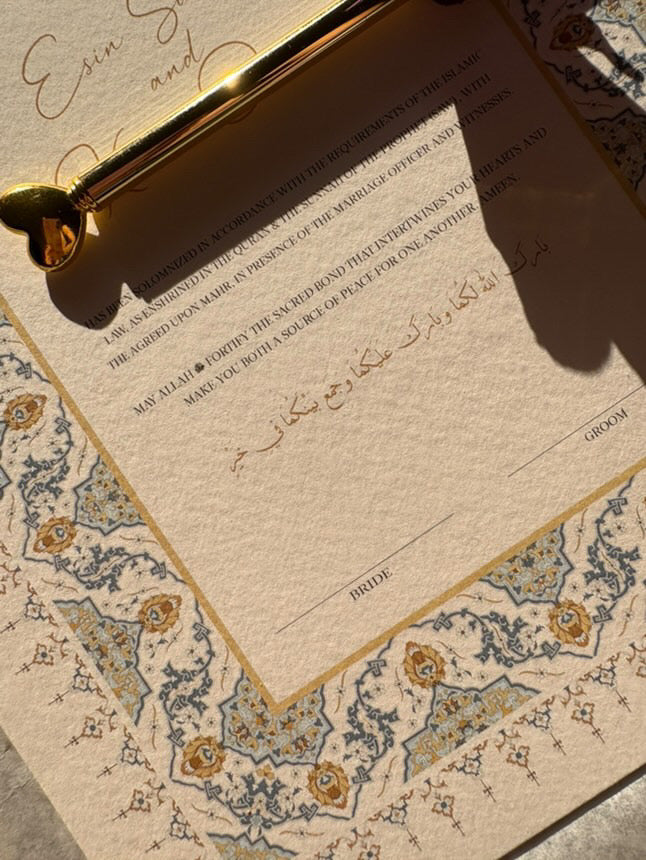 Esin
and
HAS BEEN SOLOMNIZED IN ACCORDANCE WITH THE REQUIREMENTS OF THE ISLAMIC
LAW, AS ENSHRINED IN THE QURAN & THE SUNNAH OF THE PROPHET WITH
THE AGREED UPON MAHR, IN PRESENCE OF THE MARRIAGE OFFICER AND WITNESSES.
MAY ALLAH FORTIFY THE SACRED BOND THAT INTERTWINES YOUR HEARTS AND
MAKE YOU BOTH A SOURCE OF PEACE FOR ONE ANOTHER. AMEEN.
بارك الله لكما وبارك عليكما وجمع بينكما في خير
GROOM
BRIDE